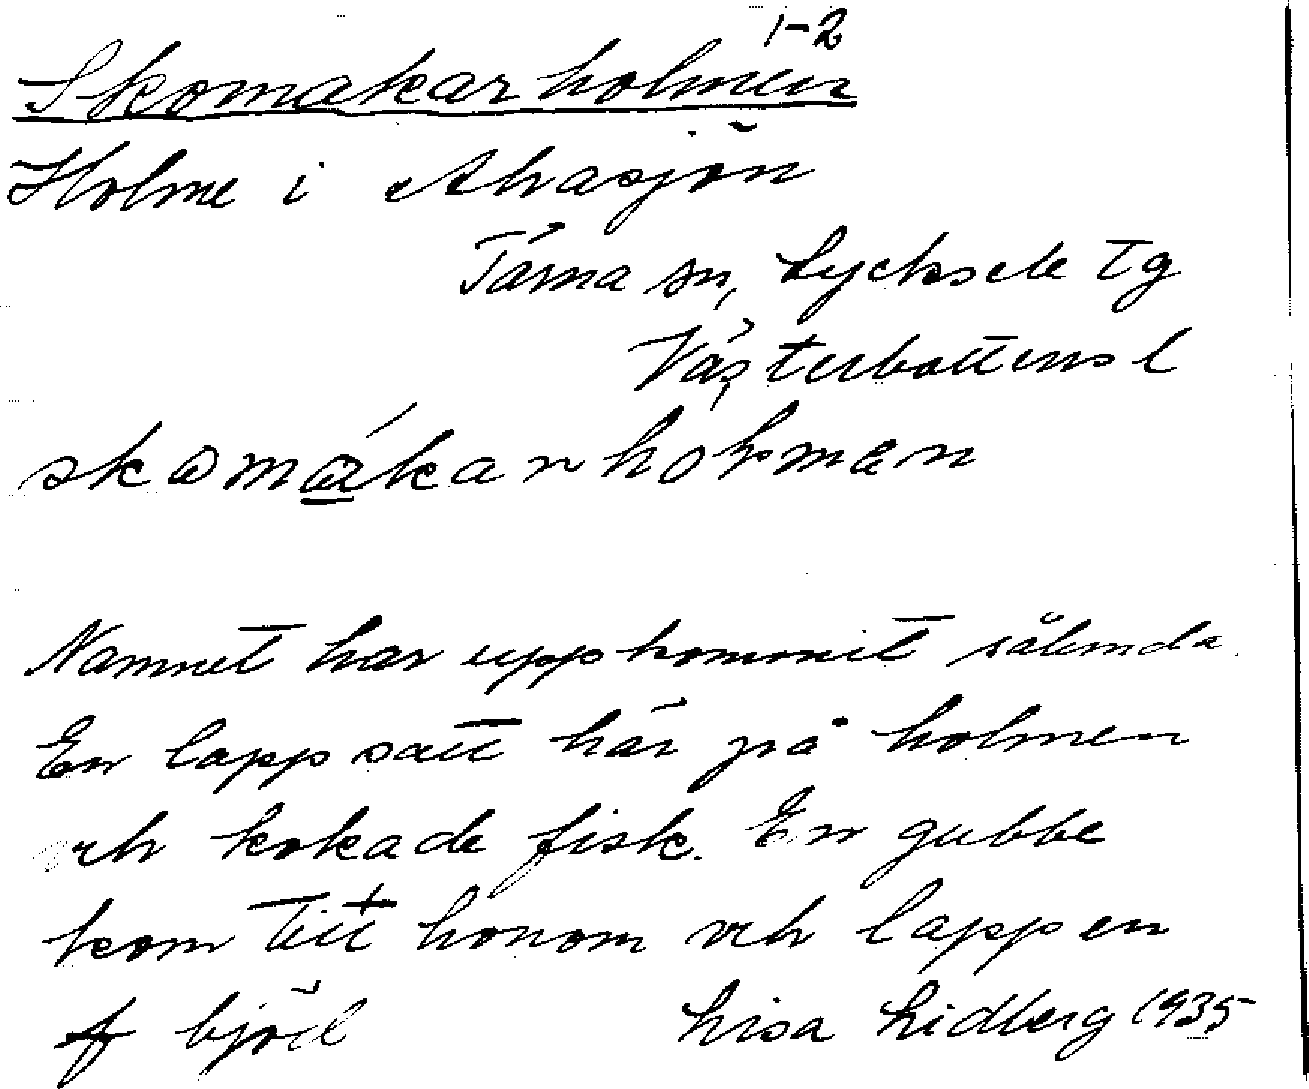 1-2
Skomakarholmen
Holme i Ahasjön
Tärna sn, Lycksele tg
Västerbottens l
skomákarhoḷmen
Namnet har uppkommit sålunda.
En lapp satt här på holmen
och kokade fisk. En gubbe
kom till honom och lappen
bjöd
Lisa Lidberg 1935